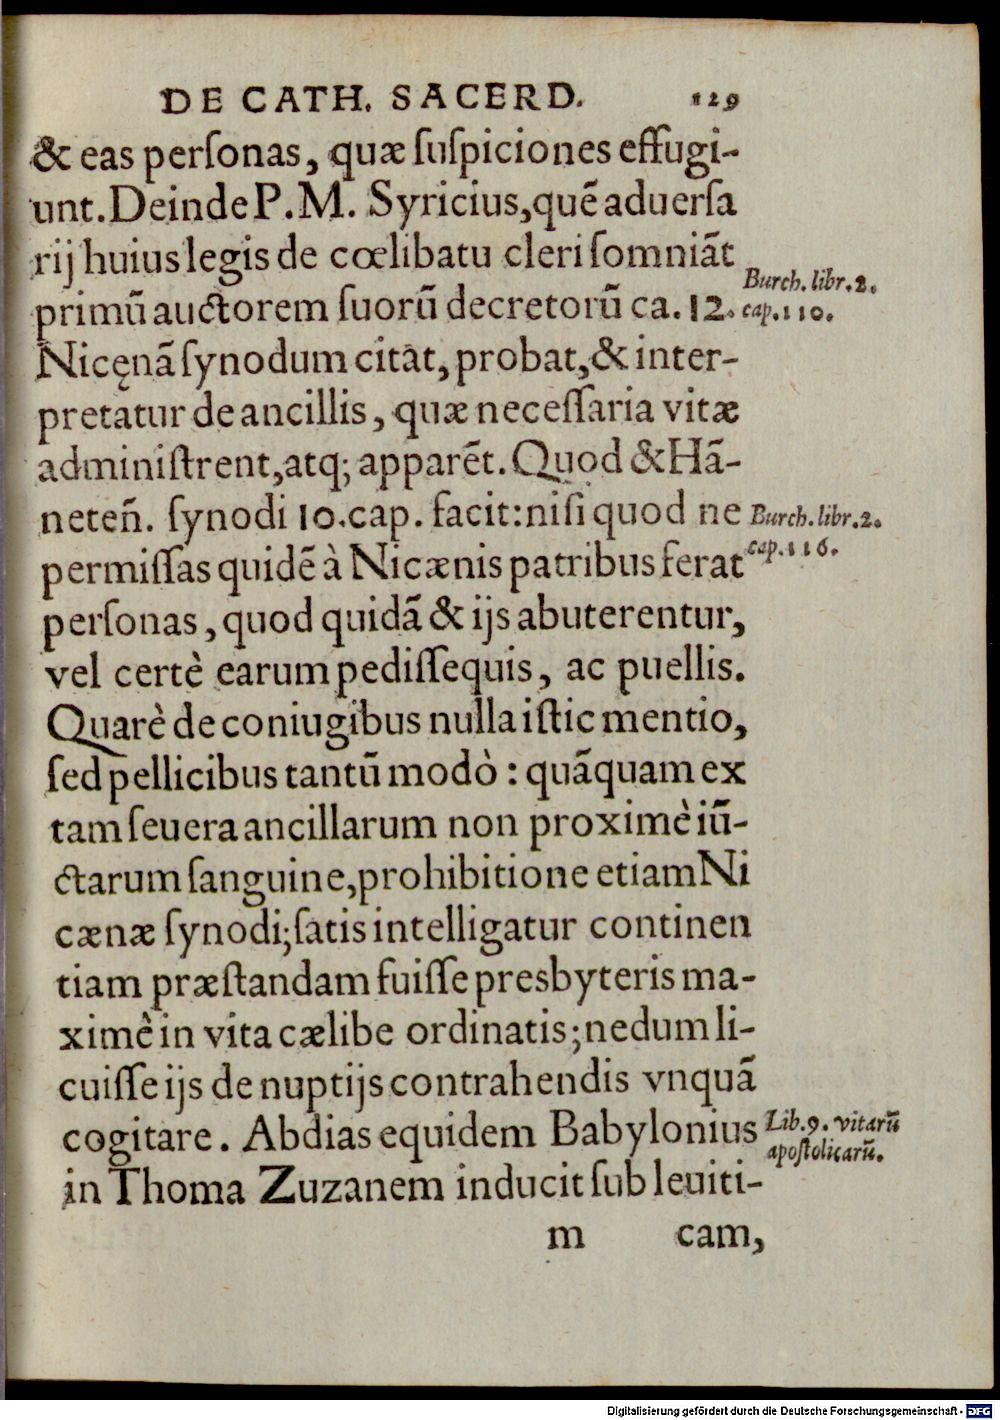 DE CATH. SACERD. 129
& eas perſonas, quæ ſuſpiciones effugi-
unt. Deinde P. M. Syricius, quẽ aduerſa
rij huius legis de cœlibatu cleri ſomniãt
primũ auctorem ſuorũ decretorũ ca. 12.
Burch. libr. 2.
cap. 110.
Nicęnã ſynodum citat, probat, & inter-
pretatur de ancillis, quæ neceſſaria vitæ
adminiſtrent, atq; apparẽt. Quod & Hã-
neteñ. ſynodi 10. cap. facit: niſi quod ne
Burch. libr. 2.
cap. 116.
permiſſas quidẽ à Nicænis patribus ferat
perſonas, quod quidã & ijs abuterentur,
vel certè earum pediſſequis, ac puellis.
Quarè de coniugibus nulla iſtic mentio,
ſed pellicibus tantũ modò : quãquam ex
tam ſeuera ancillarum non proximè iũ-
ctarum ſanguine, prohibitione etiam Ni
cænæ ſynodi; ſatis intelligatur continen
tiam præſtandam fuiſſe presbyteris ma-
ximè in vita cælibe ordinatis; nedum li-
cuiſſe ijs de nuptijs contrahendis vnquã
cogitare. Abdias equidem Babylonius
Lib. 9. vitarũ
apoſtolicarũ.
in Thoma Zuzanem inducit ſub leuiti-
m cam,
Digitalisierung gefördert durch die Deutsche Forschungsgemeinschaft - DFG